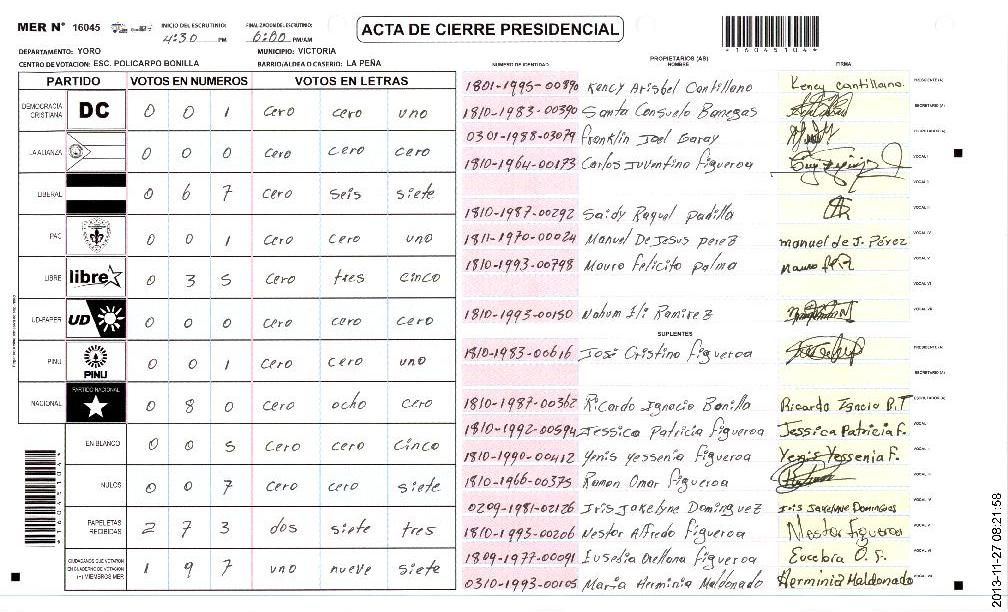 MER Nº 16045
INICIO DEL ESCRUTINIO: 4:30 PM
FINALIZACION DEL ESCRUTINIO: 6:00 PM/AM
ACTA DE CIERRE PRESIDENCIAL
*160451044*
DEPARTAMENTO: YORO
MUNICIPIO: VICTORIA
CENTRO DE VOTACION: ESC. POLICARPO BONILLA
BARRIO/ALDEA O CASERIO: LA PEÑA
PARTIDO VOTOS EN NUMEROS VOTOS EN LETRAS
DEMOCRACIA CRISTIANA DC 0 0 1 cero cero uno
LA ALIANZA 0 0 0 cero cero cero
LIBERAL 0 6 7 cero seis siete
PAC 0 0 1 cero cero uno
LIBRE libre 0 3 5 cero tres cinco
UD-FAPER UD 0 0 0 cero cero cero
PINU PINU 0 0 1 cero cero uno
NACIONAL PARTIDO NACIONAL 0 8 0 cero ocho cero
EN BLANCO 0 0 5 cero cero cinco
NULOS 0 0 7 cero cero siete
PAPELETAS RECIBIDAS 2 7 3 dos siete tres
CIUDADANOS QUE VOTARON EN CUADERNO DE VOTACION (+) MIEMBROS MER 1 9 7 uno nueve siete
NUMERO DE IDENTIDAD PROPIETARIOS (AS) NOMBRE FIRMA
1801-1995-00890 Kency Arisbel Cantillano Kency cantillano. PRESIDENTE(A)
1810-1983-00390 Santa Consuelo Banegas SECRETARIO(A)
0301-1988-03079 Franklin Joel Garay
1810-1964-00173 Carlos Juventino figueroa VOCAL I
VOCAL II
1810-1987-00292 Saidy Raquel padilla VOCAL III
1811-1970-00024 Manuel De Jesus pereZ manuel de J. Pérez VOCAL IV
1810-1993-00798 Mauro felicito palma VOCAL V
VOCAL VI
1810-1993-00150 Nahum Eli RamireZ VOCAL VII
SUPLENTES
1810-1983-00616 José Cristino figueroa PRESIDENTE(A)
SECRETARIO(A)
1810-1987-00362 Ricardo Ignacio Bonilla Ricardo Ignacio B.T ESCRUTADOR(A)
1810-1992-00594 Jessica Patricia figueroa Jessica Patricia F. VOCAL I
1810-1990-00412 Yenis yessenia figueroa Yenis Yessenia F. VOCAL II
1810-1966-00375 Ramon Omar figueroa VOCAL III
0209-1981-02126 Iris Jakelyne DomingueZ Iris Jakelyne Dominguez VOCAL IV
1810-1993-00206 Nestor Alfredo figueroa Nestor Figueroa VOCAL V
1809-1977-00091 Eusebia Orellana figueroa Eucebia O. F. VOCAL VI
0310-1993-00105 Maria Herminia Maldonado Herminia Maldonado VOCAL VII
*160451044*
2013-11-27 08:21:58